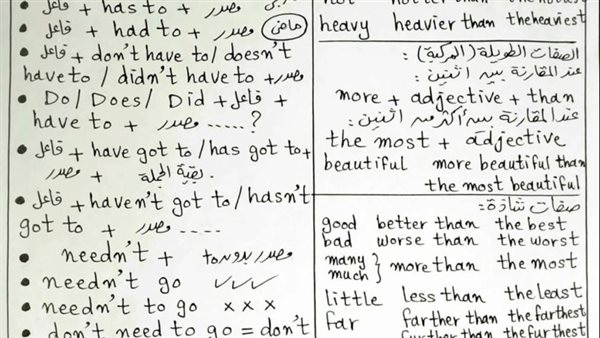 فاعل + has to + مصدر
فاعل + had to + مصدر (ماضى)
فاعل + don't have to/doesn't
have to / didn't have to + مصدر
Do/Does/ Did + فاعل +
have to + مصدر .....?
فاعل + have got to/has got to+
مصدر + بقية الجملة.
فاعل + haven't got to/hasn't
got to + مصدر .....
needn't + مصدر بدون to
needn't go ✓✓✓
needn't to go x x x
don't need to go = don't
heavy heavier than the heaviest
الصفات الطويلة (المركبة):
عند المقارنة بين اثنين:
more + adjective + than
عند المقارنة بين أكثر من اثنين:
the most + adjective
beautiful more beautiful than
the most beautiful
صفات شاذة:
good better than the best
bad worse than the worst
many
much } more than the most
little less than the least
far farther than the farthest
further than the furthest